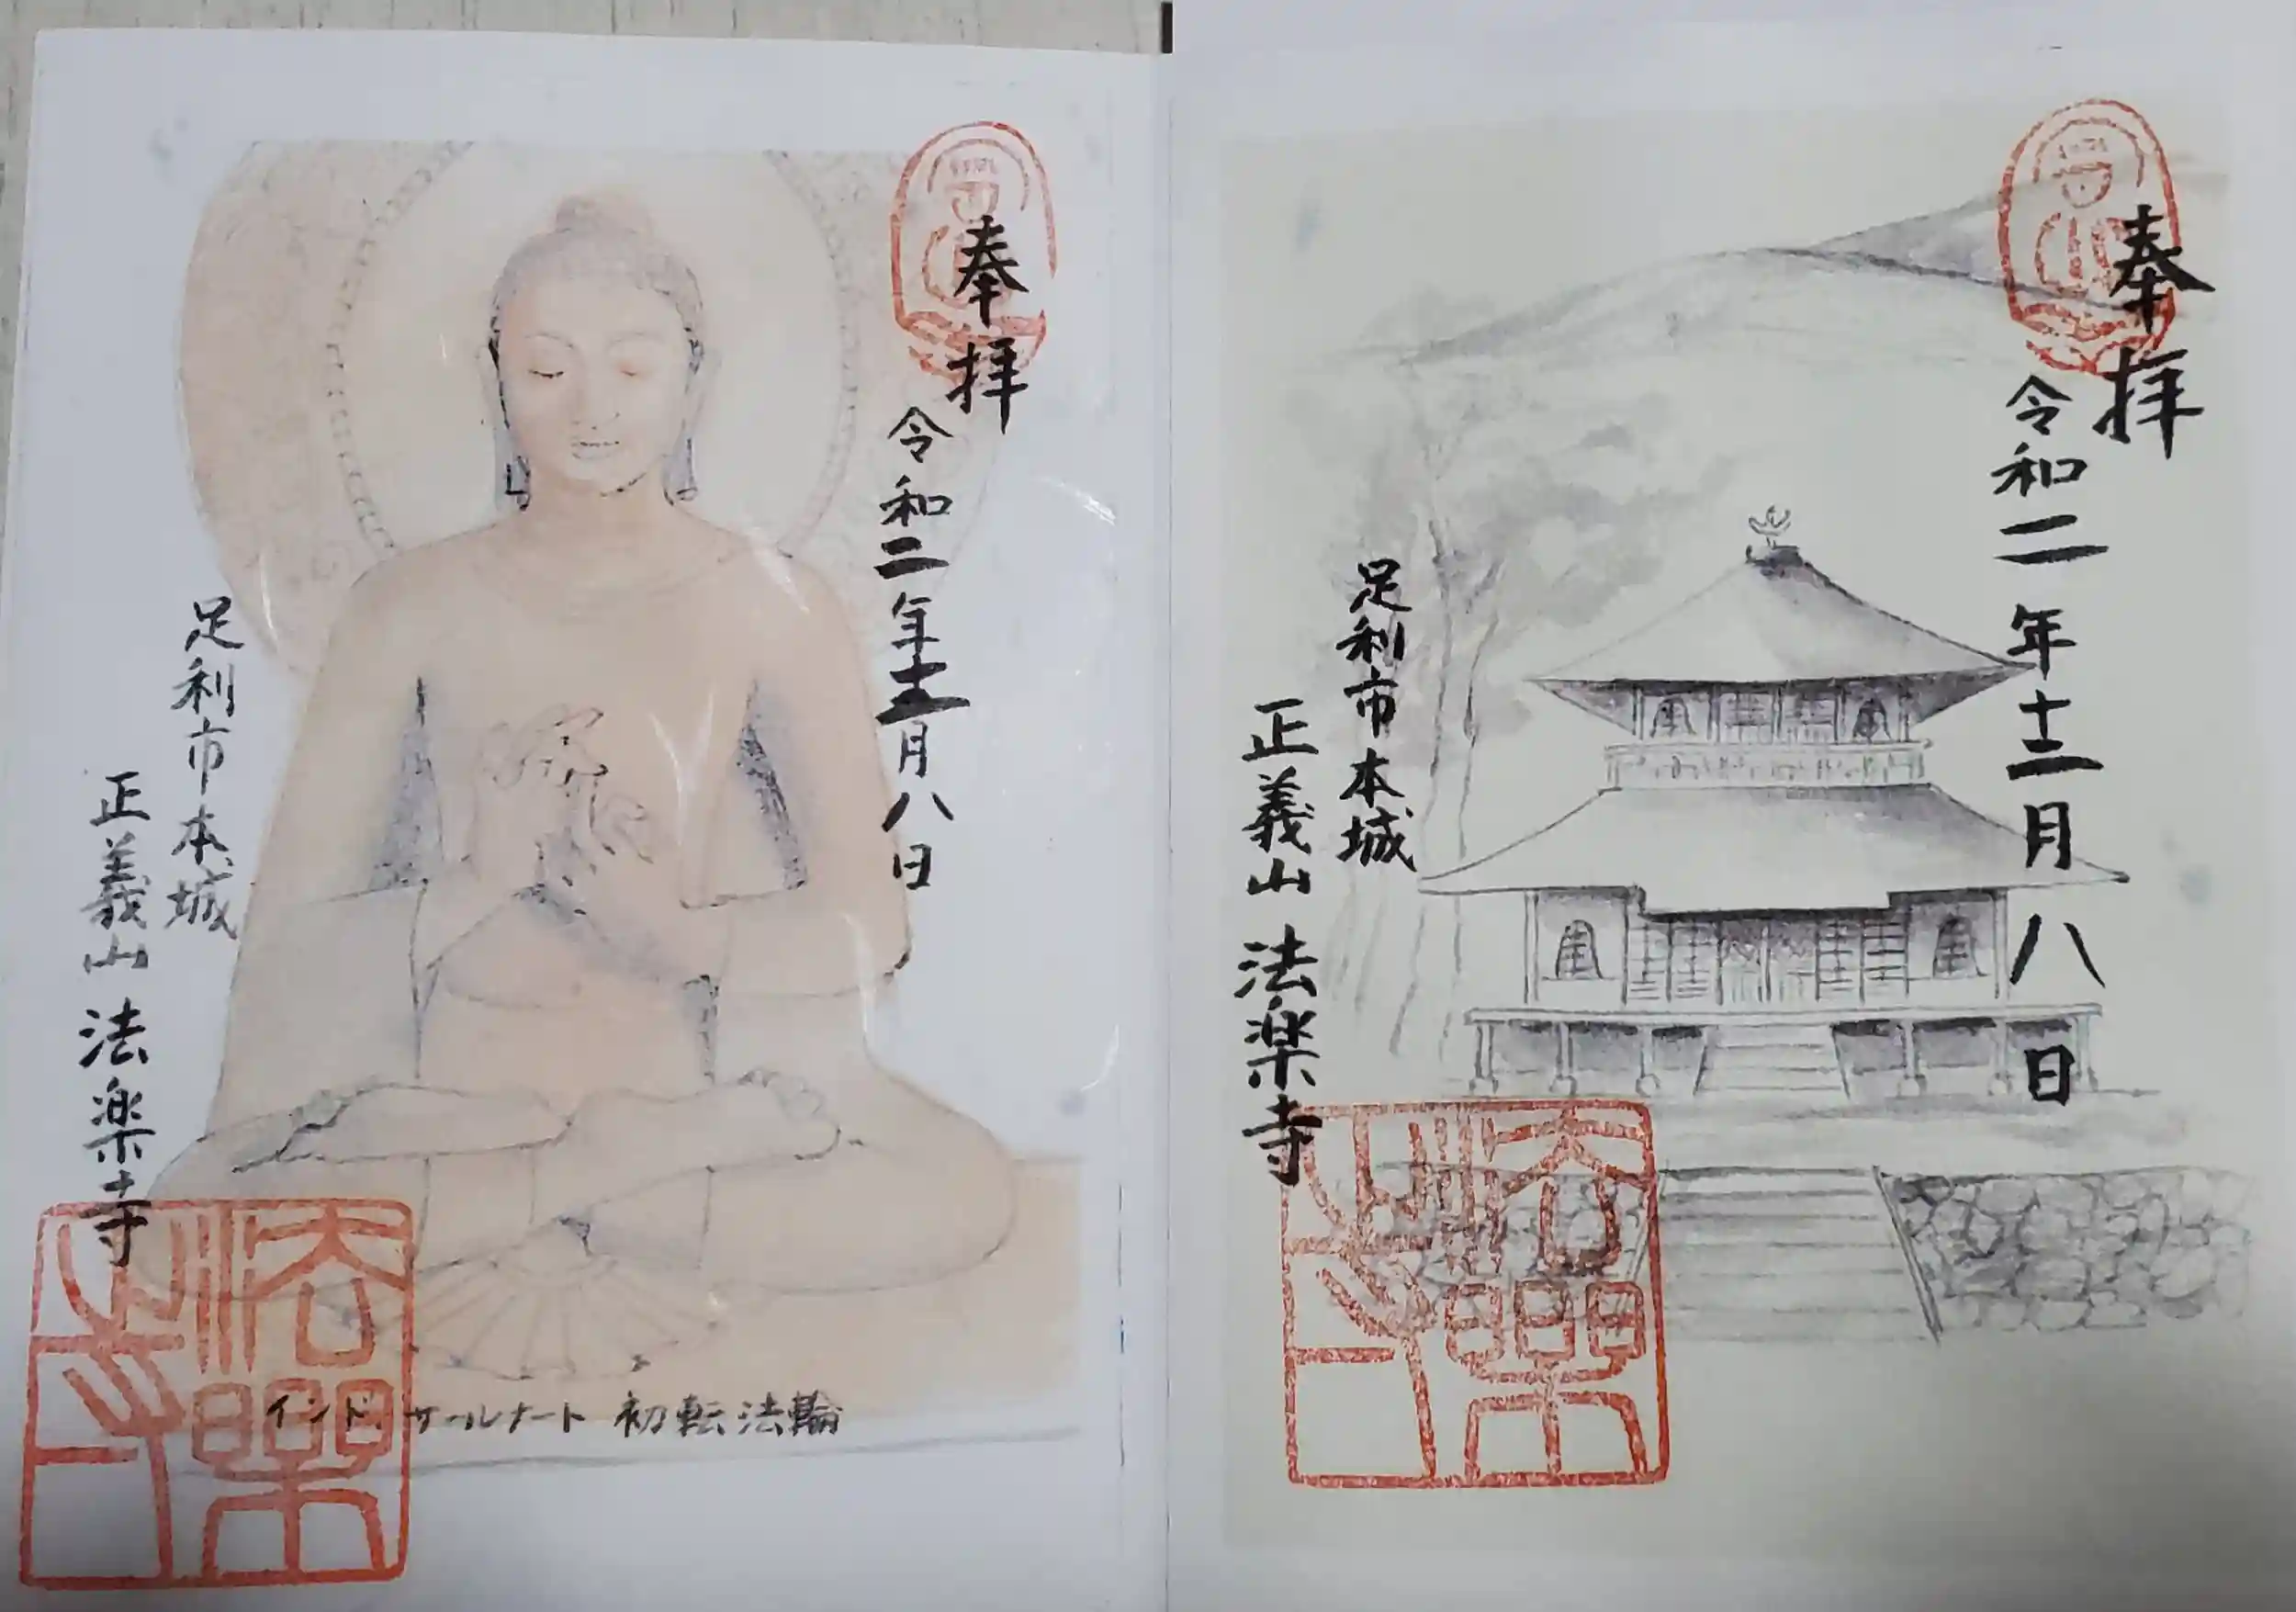 奉拝
令和二年十二月八日
足利市本城
正義山 法楽寺
インド、サールナート 初転法輪
法楽寺
奉拝
令和二年十二月八日
足利市本城
正義山 法楽寺